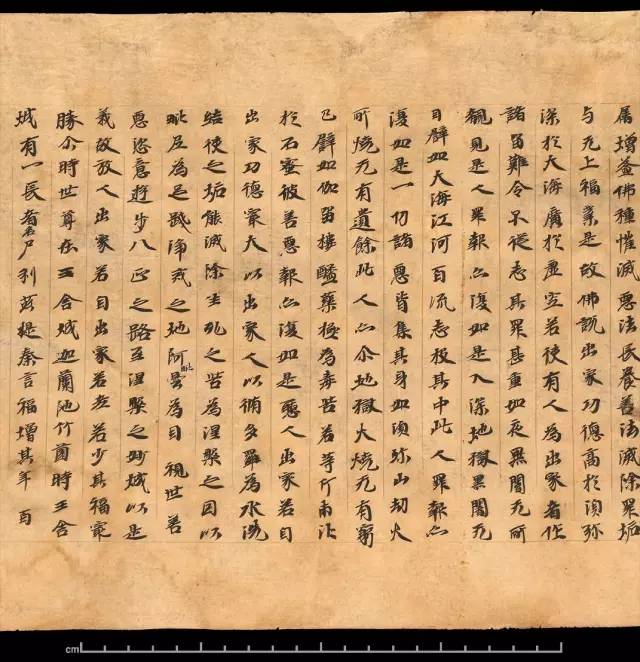 属增益佛種摧滅惡法長養善法滅除罪垢
与无上福業是故佛說出家功德高於須弥
深於大海廣於虛空若使有人為出家者作
諸留難令不從志其罪甚重如夜黑闇无所
覩見是人罪報亦復如是入深地獄黑闇无
目譬如大海江河百流悉投其中此人罪報亦
復如是一切諸惡皆集其身如須弥山劫火
所燒无有遺餘此人亦尒地獄火燒无有窮
已譬如伽留樓醯藥極為毒苦若等斤兩比
於石蜜彼善惡報亦復如是聽人出家若自
出家功德最大以出家人以脩多羅為水洗
結使之垢能滅除生死之苦為涅槃之因以
毗尼為足踐淨戒之地阿毗曇為目視世善
惡恣意遊步八正之路至涅槃之妙城以是
義故放人出家若自出家若老若少其福最
勝尒時世尊在王舍城迦蘭陀竹薗時王舍
城有一長者名尸利苾提秦言福增其年百
cm